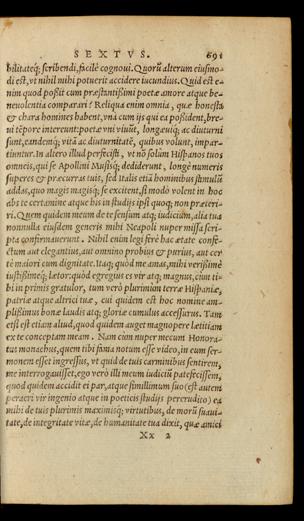 SEXTVS. 691
bilitateq́; scribendi, facilè cognoui. Quorũ alterum eiusmo-
di est, vt nihil mihi potuerit accidere iucundius. Quid est e-
nim quod possit cum præstantissimi poetæ amore atque be-
neuolentia comparari? Reliqua enim omnia, quæ honesta
& chara homines habent, vnà cum ijs qui ea possident, bre-
ui tẽpore intereunt: poetæ vni viuũt, longæuiq́; ac diuturni
sunt, eandemq́; vitã ac diuturnitatẽ, quibus volunt, impar-
tiuntur. In altero illud perfecisti, vt nõ solùm Hispanos tuos
omneis, qui se Apollini Musisq́; dediderunt, longè numeris
superes & præcurras tuis, sed Italis etiã hominibus stimulũ
addas, quo magis magisq́; se excitent, si modò volent in hoc
abs te certamine atque his in studijs ipsi quoq; non præteri-
ri. Quem quidem meum de te sensum atq; iudicium, alia tua
nonnulla eiusdem generis mihi Neapoli nuper missa scri-
pta confirmauerunt. Nihil enim legi ferè hac ætate confe-
ctum aut elegantius, aut omnino probius & purius, aut cer
tè maiori cum dignitate. Itaq; quòd me amas, mihi verissimè
iustissimeq́; lætor: quòd egregius es vir atq; magnus, cùm ti-
bi in primis gratulor, tum verò plurimùm terræ Hispaniæ,
patriæ atque altrici tuæ, cui quidem est hoc nomine am-
plissimus bonæ laudis atq; gloriæ cumulus accessurus. Tam
etsi est etiam aliud, quod quidem auget magnopere lætitiam
ex te conceptam meam. Nam cùm nuper mecum Honora-
tus monachus, quem tibi fama notum esse video, in eum ser-
monem esset ingressus, vt quid de tuis carminibus sentirem,
me interrogauisset, ego verò illi meum iudiciũ patefecissem,
quod quidem accidit ei par, atque simillimum suo (est autem
peracri vir ingenio atque in poeticis studijs percrudito) ea
mihi de tuis plurimis maximisq́; virtutibus, de morũ suaui-
tate, de integritate vitæ, de humanitate tua dixit, quæ amici
Xx 2